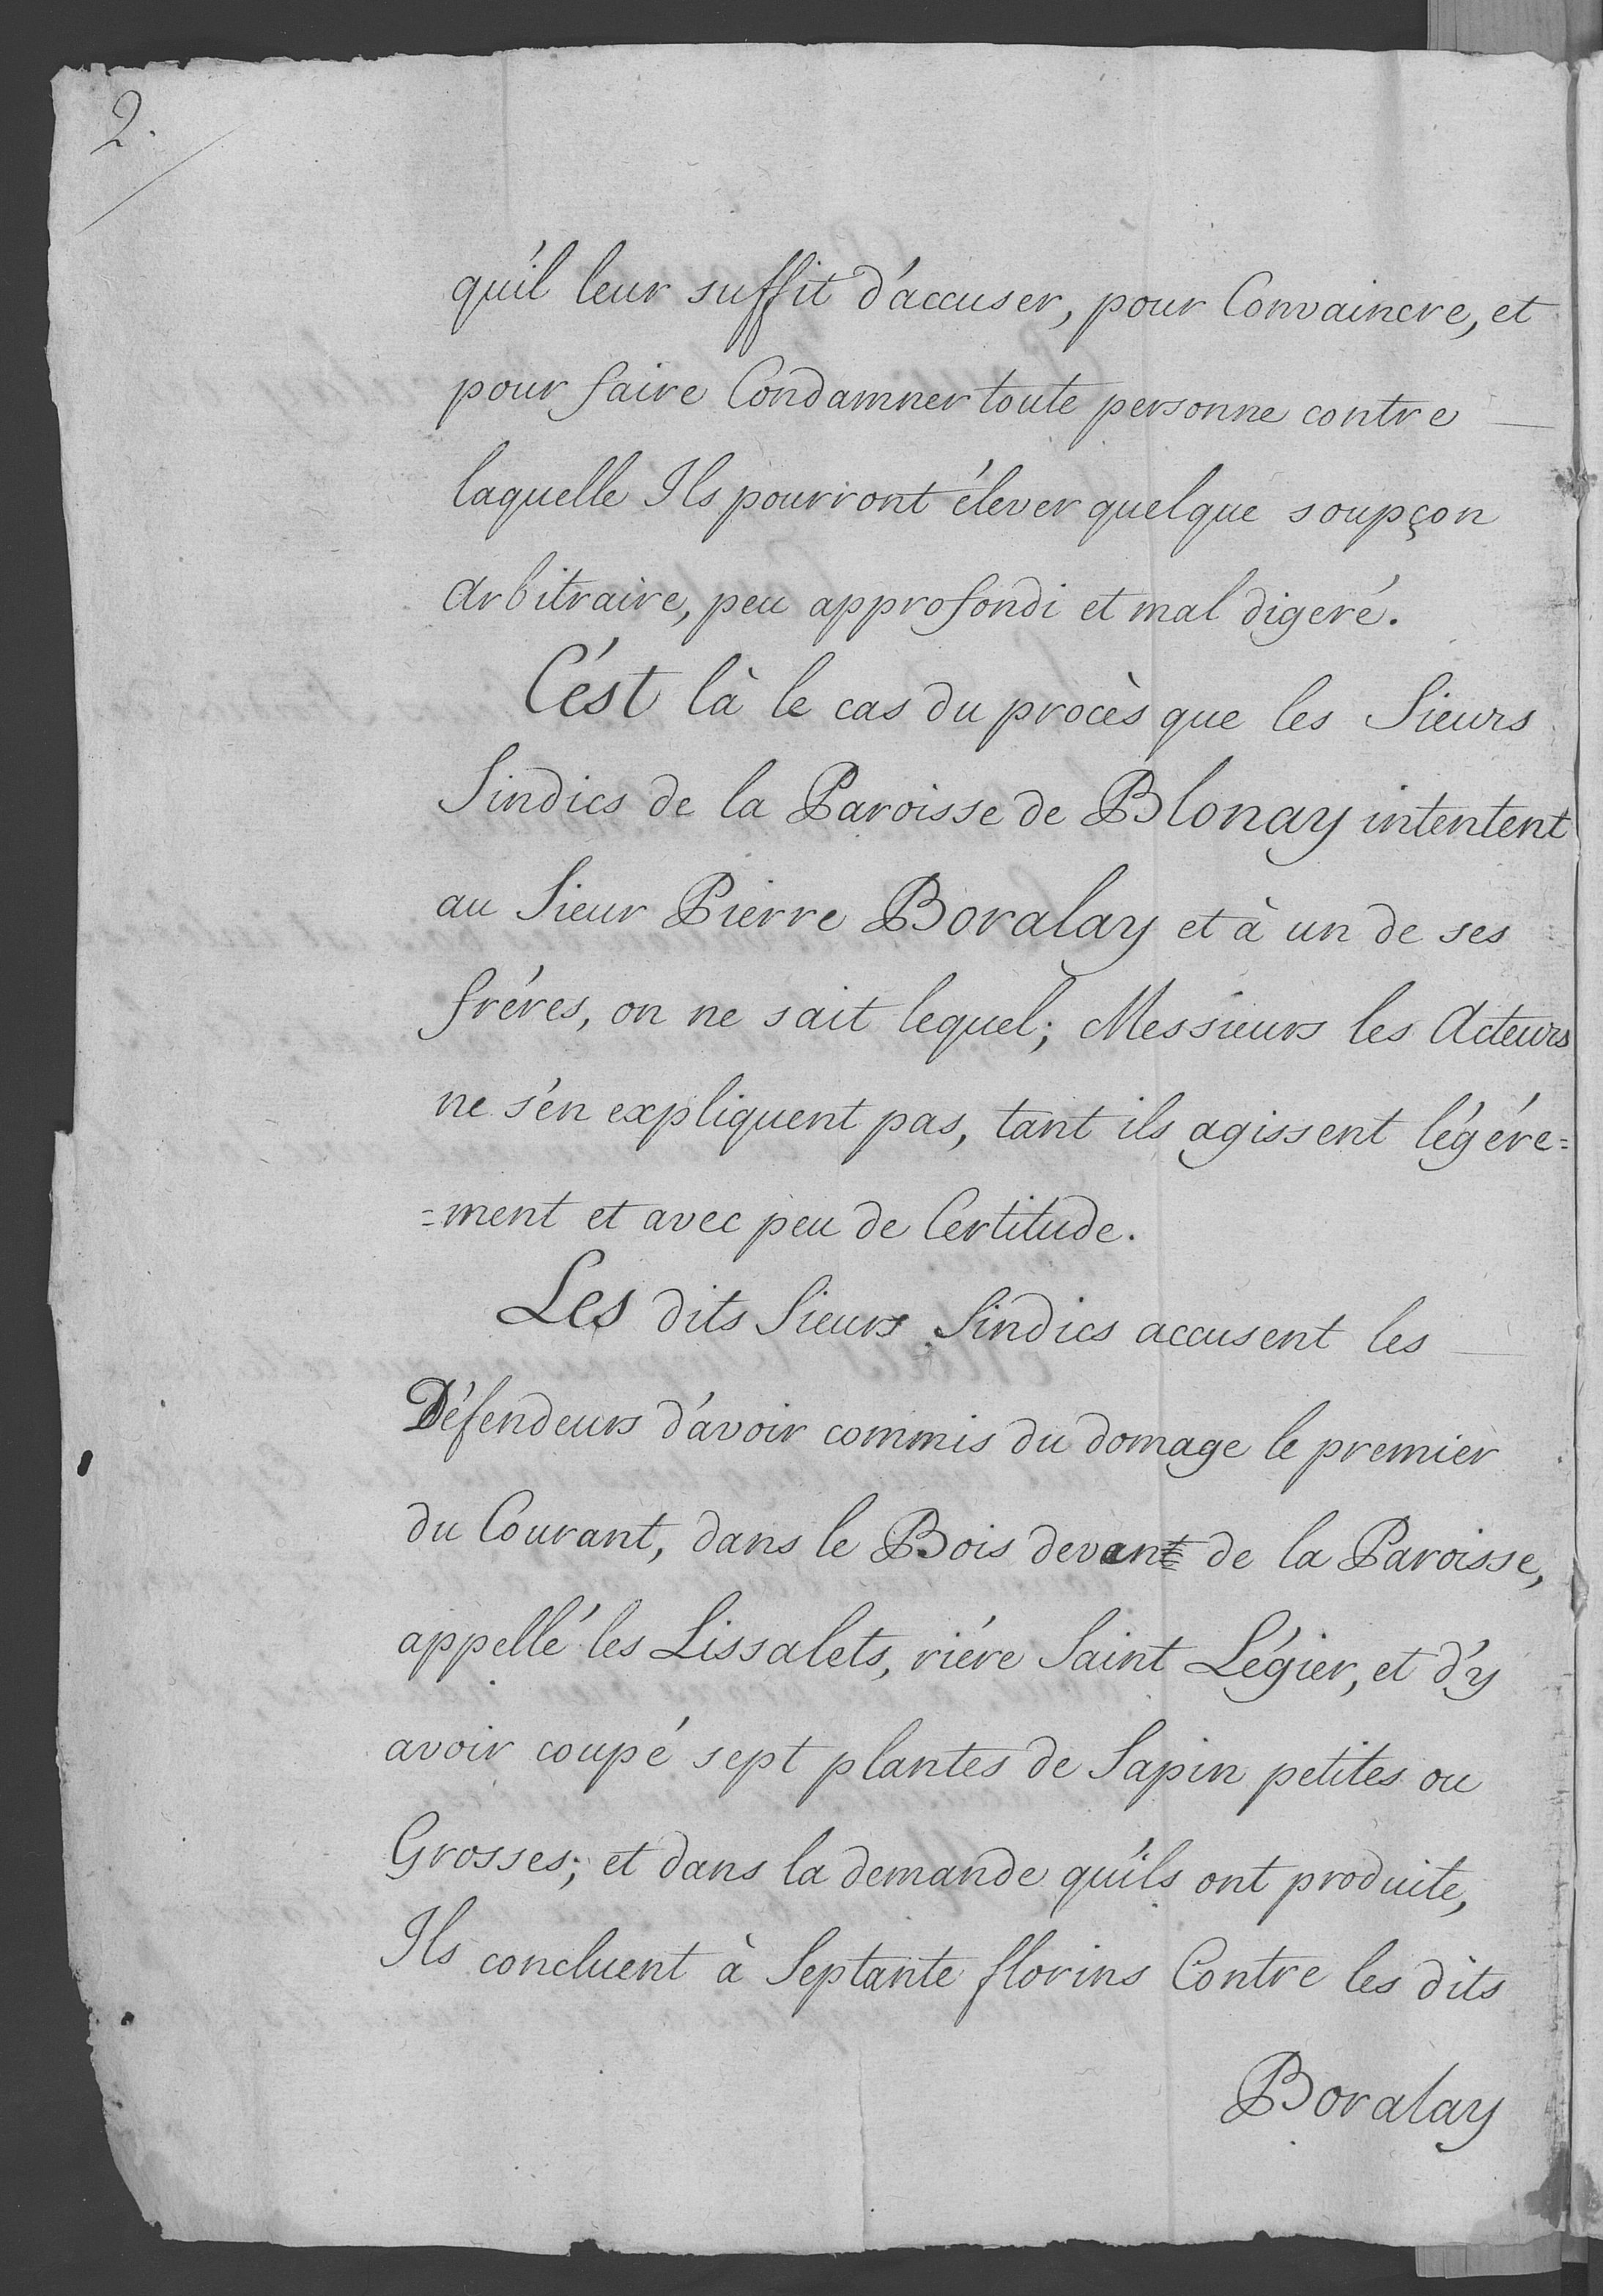 2.
qu'il leur suffit d'accuser, pour Convaincre, et
pour faire Condamner toute personne contre
laquelle Ils pourront élever quelque soupçon
arbitraire, peu approfondi et mal digeré.
C'est là le cas du procès que les Sieurs
Sindics de la Paroisse de Blonay intentent
au Sieur Pierre Boralay et à un de ses
fréres, on ne sait lequel; Messieurs les Acteurs
ne s'en expliquent pas, tant ils agissent légére=
=ment et avec peu de Certitude.
Les dits Sieurs Sindics accusent les
Défendeurs d'avoir commis du domage le premier
du Courant, dans le Bois devant de la Paroisse,
appellé les Lissalets, riére Saint Légier, et d'y
avoir coupé sept plantes de Sapin petites ou
Grosses; et dans la demande qu'ils ont produite,
Ils concluent à Septante florins Contre les dits
Boralay